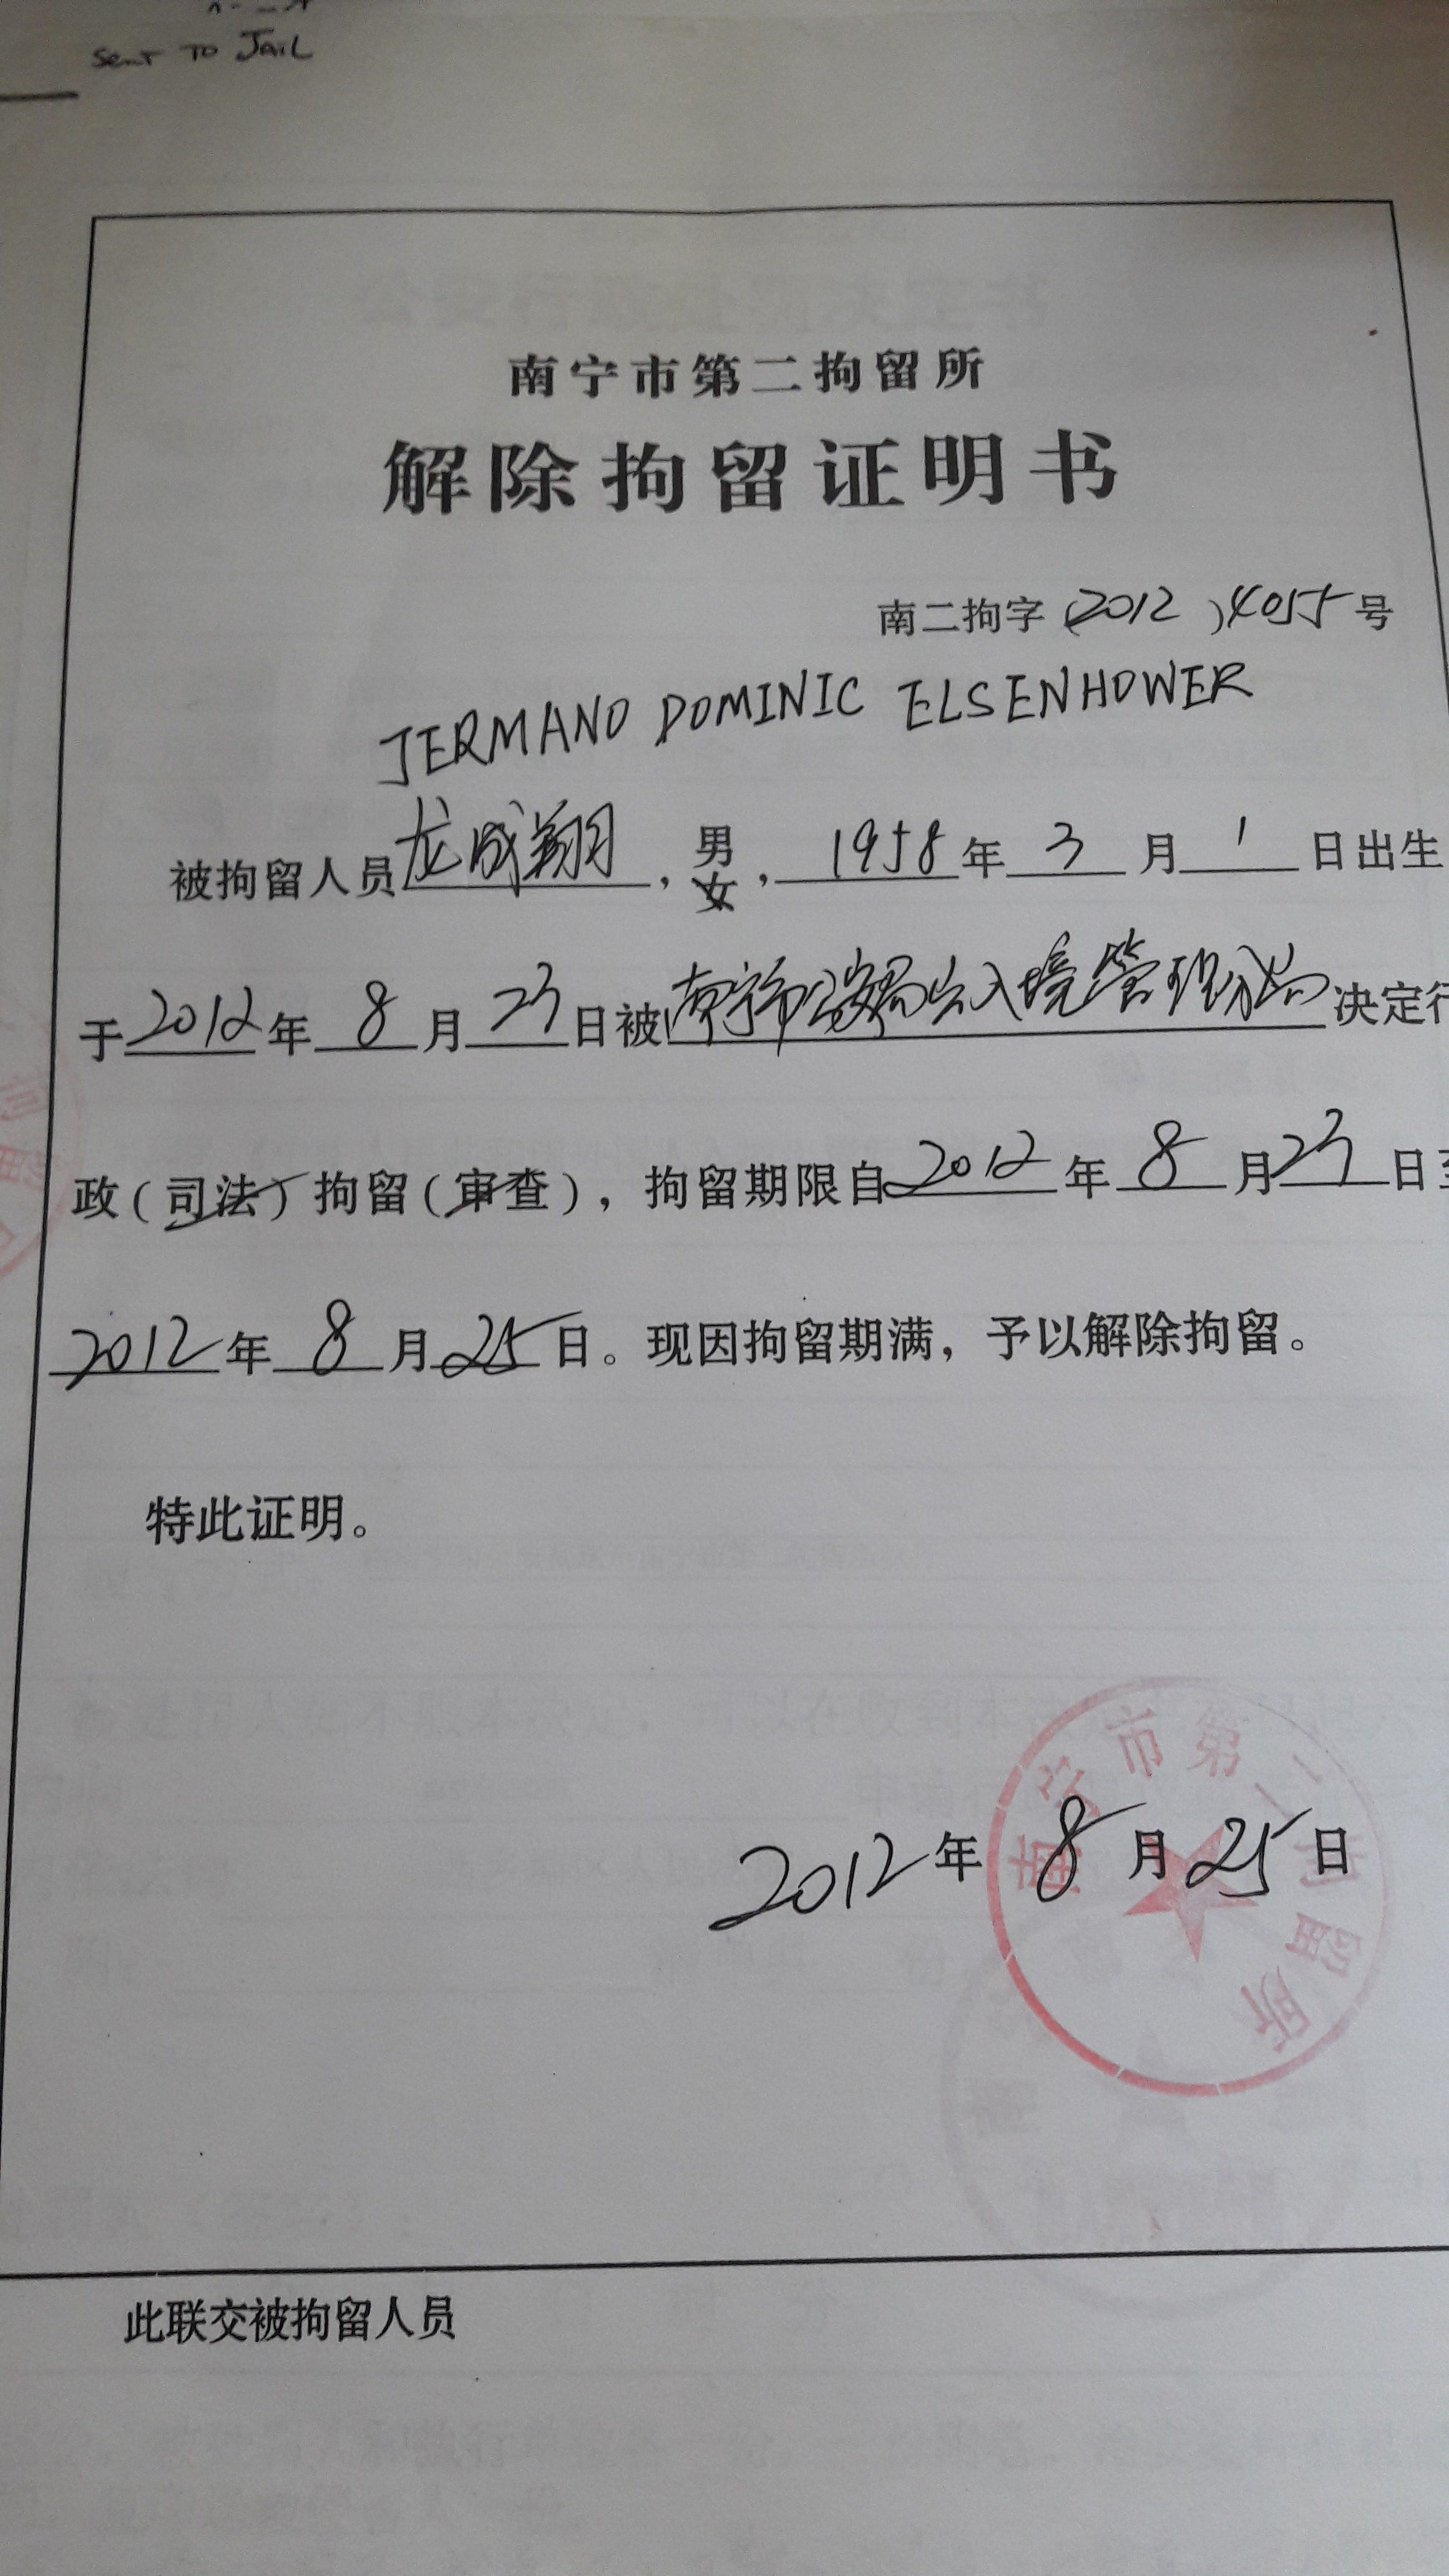 SENT TO JAIL
南宁市第二拘留所
解除拘留证明书
南二拘字(2012)4055号
JERMANO DOMINIC ELSENHOWER
被拘留人员龙成翔,男女,1958年3月1日出生
于2012年8月23日被南宁市公安局出入境管理分局决定行
政(司法)拘留(审查),拘留期限自2012年8月23日至
2012年8月25日。现因拘留期满,予以解除拘留。
特此证明。
南宁市第二拘留所
2012年8月25日
此联交被拘留人员